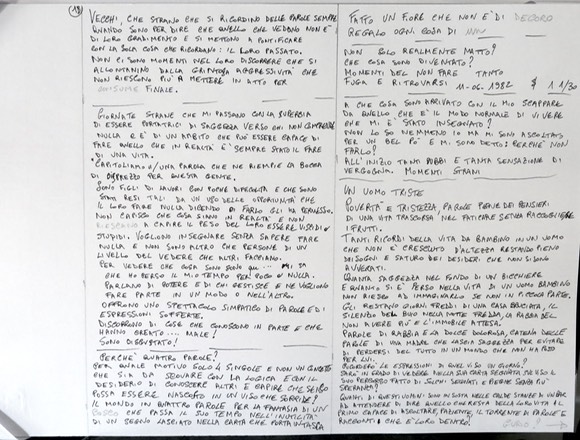 18
VECCHI, CHE STRANO CHE SI RICORDINO DELLE PAROLE SEMPRE
QUANDO SONO PER DIRE CHE QUELLO CHE VEDONO NON È
DI LORO GRADIMENTO E SI METTONO A PONTIFICARE
CON LA SOLA COSA CHE RICORDANO: IL LORO PASSATO.
NON CI SONO MOMENTI NEL LORO DISCORRERE CHE SI
ALLONTANINO DALLA GRINTOSA AGGRESSIVITÀ CHE
NON RIESCONO PIÙ A METTERE IN ATTO PER
FINALE.
GIORNATE STRANE CHE MI PASSANO CON LA SUPERBIA
DI ESSERE PORTATRICI DI SAGGEZZA VERSO CHI NON COMPRENDE
NULLA E È DI UN AMBITO CHE PUÒ ESSERE CAPACE DI
FARE QUELLO CHE IN REALTÀ È SEMPRE STATO IL FARE
DI UNA VITA.
CAPITOLIAMO UNA PAROLA CHE NE RIEMPIE LA BOCCA
DI DISPREZZO PER QUESTA GENTE.
SONO FIGLI DI LAVORI CON POCHE DIFFICOLTÀ E CHE SONO
STATI RESI TALI DA UN USO DELLE OPPORTUNITÀ CHE
IL LORO FARE NULLA DICENDO DI FARLO GLI HA PERMESSO.
NON CAPISCO CHE COSA SIANO IN REALTÀ E NON
RIESCO A CAPIRE IL PESO DEL LORO ESSERE VISCIDI
STUPIDI. VOGLIONO INSEGNARE SENZA SAPERE FARE
NULLA E NON SONO ALTRO CHE PERSONE DI UN
LIVELLO DEL VEDERE CHE ALTRI FACCIANO.
PER VEDERE CHE COSA SONO MI SA
CHE HO PERSO IL MIO TEMPO PER POCO O NULLA.
PARLANO DI POTERE E DI CHI GESTISCE E NE VOGLIONO
FARE PARTE IN UN MODO O NELL'ALTRO.
OFFRONO UNO SPETTACOLO SIMPATICO DI PAROLE ED I
ESPRESSIONI SOFFERTE.
DISCORRONO DI COSE CHE CONOSCONO IN PARTE E CHE
HANNO CREATO .... MALE!
SONO DISGUSTATO!
PERCHÉ QUATTRO PAROLE?
PER QUALE MOTIVO SOLO 4 SINGOLE E NON UN CONCETTO
CHE SIA DA SEGUIRE CON LA LOGICA E CON IL
DESIDERIO DI CONOSCERE ALTRI E CAPIRE CHE SEI
POSSA ESSERE NASCOSTO IN UN VISO CHE SORRIDE?
IL MONDO IN QUATTRO PAROLE PER LA FANTASIA DI UN
CHE PASSA IL SUO TEMPO NELL'INUTILITÀ
DI UN SEGNO LASCIATO NELLA CARTA CHE PORTA IN TASCA
FATTO UN FIORE CHE NON È DI DECORO
REGALO OGNI COSA DI
NON SOLO REALMENTE MATTO?
CHE COSA SONO DIVENTATO?
MOMENTI DEL NON FARE TANTO
FUGA E RITROVARSI 11-06.1982 $ 1 1/30
A CHE COSA SONO ARRIVATO CON IL MIO SCAPPARE
DA QUELLO CHE È IL MODO NORMALE DI VIVERE
CHE MI È STATO INSEGNATO?
NON LO SO NEMMENO IO MA MI SONO ASCOLTATO
PER UN BEL PO' E MI SONO DETTO: PERCHÉ NON
FARLO?
ALL'INIZIO TANTI DUBBI E TANTA SENSAZIONE DI
VERGOGNA. MOMENTI STRANI
UN UOMO TRISTE
POVERTÀ E TRISTEZZA, PAROLE PIENE DEI PENSIERI
DI UNA VITA TRASCORSA NEL FATICARE SENZA RACCOGLIERE
I FRUTTI.
TANTI RICORDI DELLA VITA DA BAMBINO IN UN UOMO
CHE NON È CRESCIUTO D'ALTEZZA RESTANDO PIENO
DI SOGNI E SATURO DEI DESIDERI CHE NON SI SONO
AVVERATI.
QUANTA SAGGEZZA NEL FONDO DI UN BICCHIERE
E QUANTO SI È PERSO NELLA VITA DI UN UOMO BAMBINO
NON RIESCO AD IMMAGINARLO SE NON IN PICCOLA PARTE.
GLI RESTANO GIORNI FREDDI DI UNA CASA BRUCIATA, IL
SILENZIO DEL BUIO NELLA NOTTE FREDDA, LA RABBIA DEL
NON AVERE PIÙ E L'IMMOBILE ATTESA.
PAROLE DI RABBIA E LA DOLCE DOLOROSA, CATENA DELLE
PAROLE DI UNA MADRE CHE LASCIA SAGGEZZA PER EVITARE
DI PERDERSI DEL TUTTO IN UN MONDO CHE NON HA POSTO
PER LUI.
RICORDERÒ LE ESPRESSIONI DI QUEL VISO UN GIORNO?
SARÒ IN GRADO DI VEDERE NELLA SUA CARTA SEGNATA DEL VISO IL
SUO PERCORSO FATTO DI SOLCHI SEGNATI E PIENE SENZA PIÙ
SPERANZA?
QUANTI DI QUESTI UOMINI SONO IN SOSTA NELLE SEDIE STANCHE DI UN BAR
AD ATTENDERE DI DIRE QUELLO CHE RESTA DELLA LORO VITA AL
PRIMO CAPACE DI ASCOLTARE, PAZIENTE, IL TORRENTE DI PAROLE E
RACCONTI CHE È LORO DENTRO.